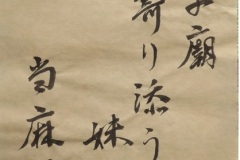 廟
寄り添う
妹
当麻